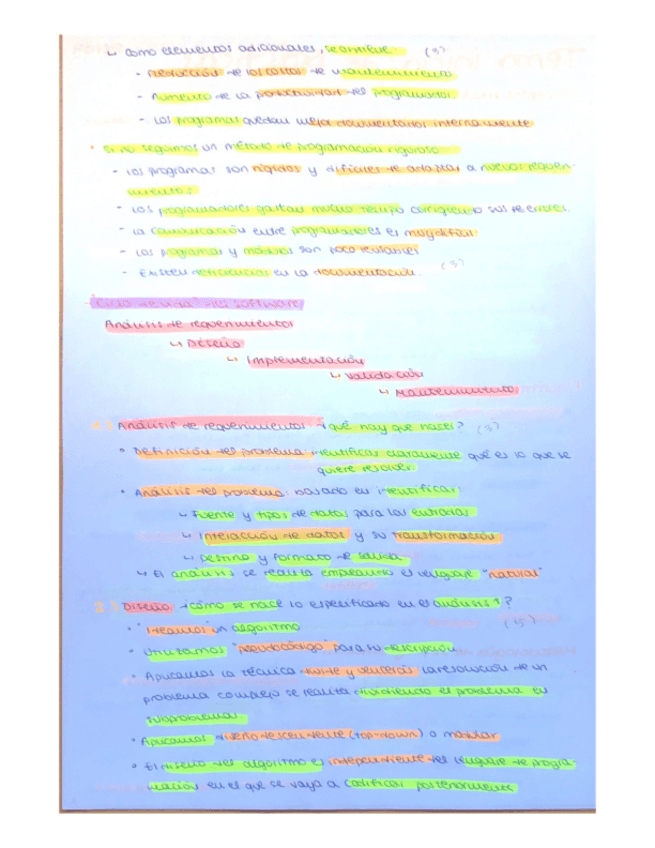 ↳ Como elementos adicionales, se consigue: (3)
- Reducción de los costos de mantenimiento.
- Aumento de la productividad del programador.
- Los programas quedan mejor documentados internamente
• Si no seguimos un método de programación riguroso:
- Los programas son rígidos y difíciles de adaptar a nuevos requeri-
mientos.
- Los programadores gastan mucho tiempo corrigiendo sus errores.
- La comunicación entre programadores es muy difícil
- Los programas y módulos son poco reusables
- Existen deficiencias en la documentación. (3)
"Ciclo de vida" del software
Análisis de requerimientos
↳ Diseño
↳ Implementación
↳ Validación
↳ Mantenimiento
Análisis de requerimientos: ¿qué hay que hacer? (3)
• Definición del problema: identificar claramente qué es lo que se
quiere resolver.
• Análisis del problema: basado en identificar:
↳ Fuente y tipos de datos para las entradas
↳ Interacción de datos y su transformación
↳ Destino y formato de salida
↳ El análisis se realiza empleando el lenguaje "natural"
Diseño: ¿cómo se hace lo especificado en el análisis?
• Ideamos un algoritmo
• Utilizamos "pseudocódigo" para su descripción
• Aplicamos la técnica divide y vencerás: la resolución de un
problema complejo se realiza dividiendo el problema en
subproblemas
• Aplicamos diseño descendente (top-down) o modular
• El diseño del algoritmo es independiente del lenguaje de progra-
mación en el que se vaya a codificar posteriormente